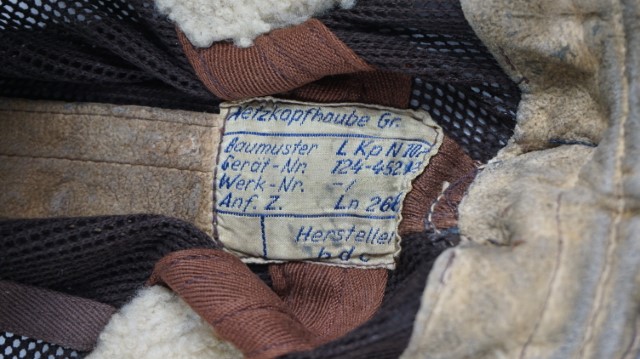 Netzkopfhaube Gr.
Baumuster L Kp N 101
Gerät-Nr. 124-452
Werk-Nr. -/
Anf. Z. Ln 266
Hersteller
bdc